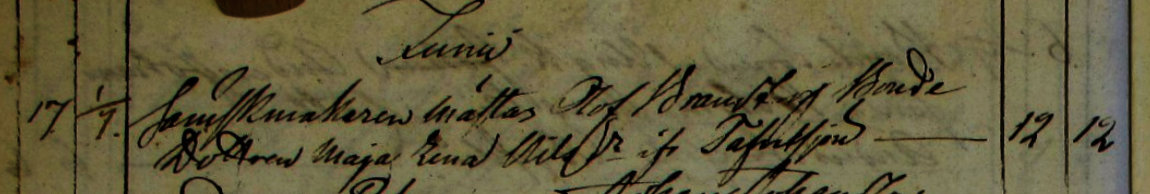 Junii
17 1/7. Sämskmakaren Mattas Olof Brandt og Bonde
Dottren Maja Lena Nils Dr ifr Tafvelsjön — 12 12